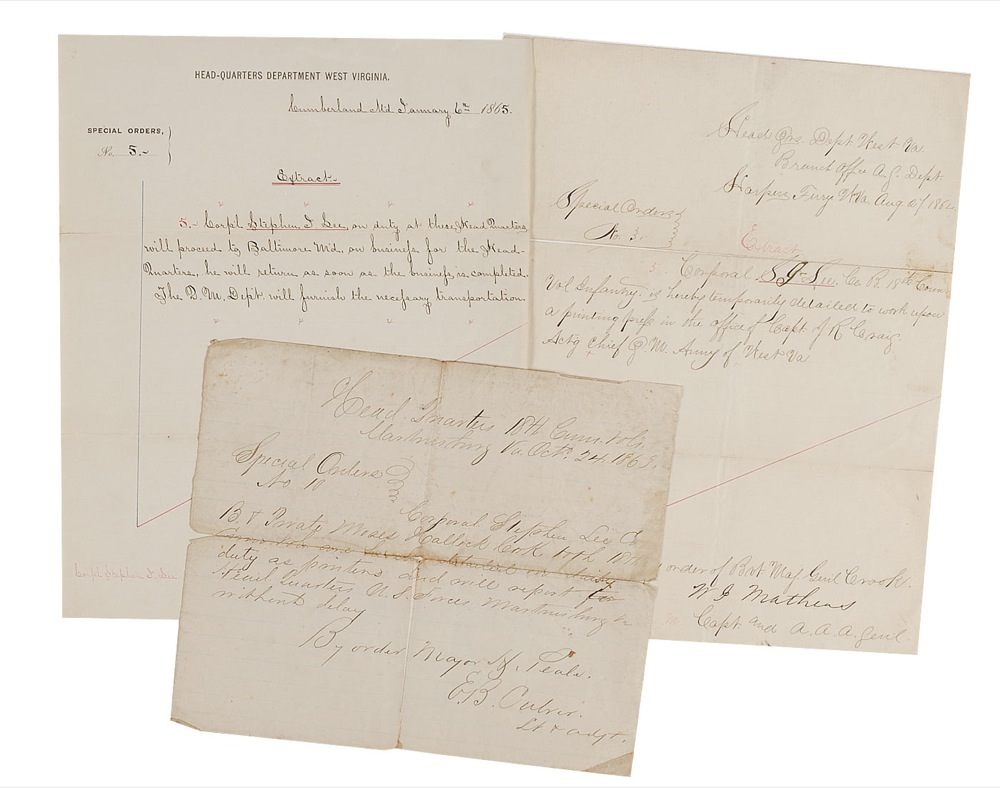 HEAD-QUARTERS DEPARTMENT WEST VIRGINIA,
Cumberland Md. January 6th 1865.
SPECIAL ORDERS,
No. 5.~
Extract.
5.~ Corp'l. Stephen J. Lee, on duty at these Head Quarters
will proceed to Baltimore Md. on business for the Head-
Quarters, he will return as soon as the business is completed.
The Q. M. Dept. will furnish the necessary transportation.
Corpl. Stephen J. Lee
Head Qrs. Dept. West Va
Branch Office A. G. Dept.
Harpers Ferry W.Va. Aug 27 1864
Special Orders
No. 3.
Extract
3. Corporal S J Lee Co. B. 18th Conn
Vol Infantry. is hereby temporarily detailed to work upon
a printing press in the office of Capt J R Craig
Act'g Chief Q. M. Army of West Va
order of Bvt Maj. Genl Crook.
Capt and A. A. A. Genl
Head Quarters 18th Conn. Vols.
Martinsburg Va. Oct. 24, 186
Special Orders
No 10
Corporal Stephen Lee Co
B. & Private Moses Hallock Co K both 18th
Conn Vols are detailed on
duty as printers and will report
Head Quarters U. S. Forces. Martinsburg
without delay
By order Major H. Peale.
E. B. Culver.
Lt & Adjt.